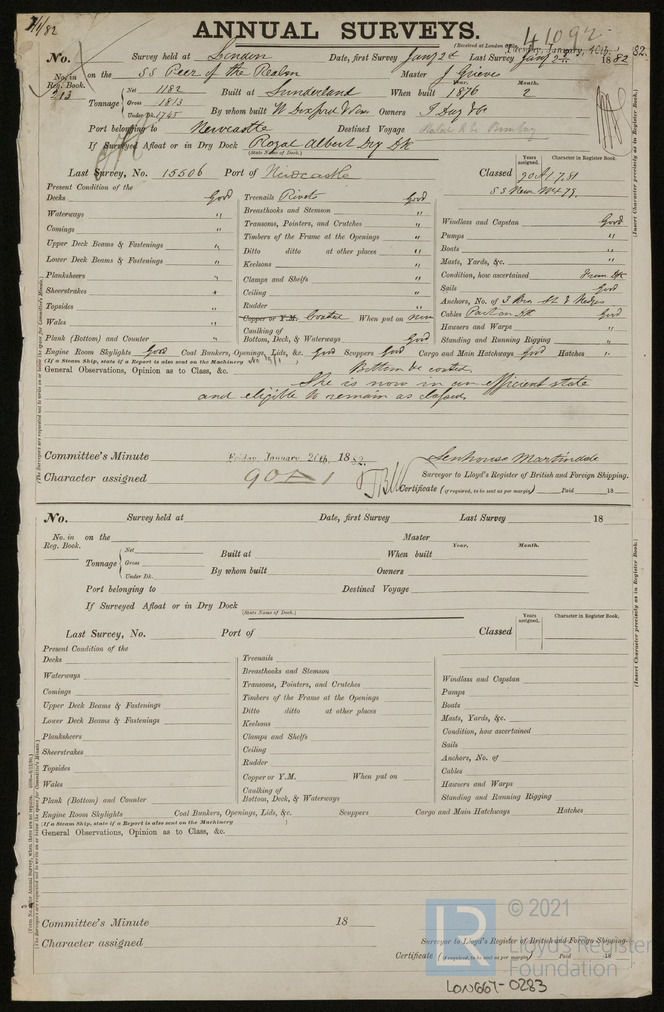 7/4/82
ANNUAL SURVEYS.
41092
(Received at London Office Tuesday, January, 4th, 1882.
No. Survey held at London Date, first Survey Jany 2d Last Survey Jany 2d 1882
No. in Reg. Book. 213 on the SS Peer of the Realm Master J Grieves
Tonnage Net 1182 Built at Sunderland When built Year. 1876 Month. 2
Gross 1813
Under Dk. 1745 By whom built W Doxford & Sons Owners
Port belonging to Newcastle Destined Voyage Bombay
If Surveyed Afloat or in Dry Dock Royal Albert Dry Dk
(State Name of Dock.)
Last Survey, No. 15506 Port of Newcastle Classed Years assigned. Character in Register Book.
90A1 7.81
SS New No 4-79
Present Condition of the
Decks Good
Waterways "
Comings "
Upper Deck Beams & Fastenings "
Lower Deck Beams & Fastenings "
Planksheers "
Sheerstrakes "
Topsides "
Wales "
Plank (Bottom) and Counter "
Treenails Rivets Good
Breasthooks and Stemson "
Transoms, Pointers, and Crutches "
Timbers of the Frame at the Openings "
Ditto ditto at other places "
Keelsons "
Clamps and Shelfs "
Ceiling "
Rudder "
Copper or Y.M. Coated When put on now
Caulking of Bottom, Deck, & Waterways Good
Windlass and Capstan Good
Pumps "
Boats "
Masts, Yards, &c. "
Condition, how ascertained From Dk
Sails Good
Anchors, No. of 3 Bro. St & Kedges
Cables Part on Dk Good
Hawsers and Warps "
Standing and Running Rigging "
Engine Room Skylights Good Coal Bunkers, Openings, Lids, &c. Good Scuppers Good Cargo and Main Hatchways Good Hatches "
(If a Steam Ship, state if a Report is also sent on the Machinery
General Observations, Opinion as to Class, &c. Bottom be coated.
She is now in an efficient state
and eligible to remain as classed.
Committee's Minute Friday, January, 20th, 1882. Senhouse Martindale
Character assigned 90A1 Surveyor to Lloyd's Register of British and Foreign Shipping.
Certificate (if required, to be sent as per margin) Paid 18
(Insert Character precisely as in Register Book.)
(The Surveyors are requested not to write on or below the space for Committee's Minute.)
No. Survey held at Date, first Survey Last Survey 18
No. in Reg. Book. on the Master
Tonnage Net Built at When built Year. Month.
Gross
Under Dk. By whom built Owners
Port belonging to Destined Voyage
If Surveyed Afloat or in Dry Dock
(State Name of Dock.)
Last Survey, No. Port of Classed Years assigned. Character in Register Book.
Present Condition of the
Decks
Waterways
Comings
Upper Deck Beams & Fastenings
Lower Deck Beams & Fastenings
Planksheers
Sheerstrakes
Topsides
Wales
Plank (Bottom) and Counter
Treenails
Breasthooks and Stemson
Transoms, Pointers, and Crutches
Timbers of the Frame at the Openings
Ditto ditto at other places
Keelsons
Clamps and Shelfs
Ceiling
Rudder
Copper or Y.M. When put on
Caulking of Bottom, Deck, & Waterways
Windlass and Capstan
Pumps
Boats
Masts, Yards, &c.
Condition, how ascertained
Sails
Anchors, No. of
Cables
Hawsers and Warps
Standing and Running Rigging
Engine Room Skylights Coal Bunkers, Openings, Lids, &c. Scuppers Cargo and Main Hatchways Hatches
(If a Steam Ship, state if a Report is also sent on the Machinery )
General Observations, Opinion as to Class, &c.
Committee's Minute 18
Character assigned Surveyor to Lloyd's Register of British and Foreign Shipping.
Certificate (if required, to be sent as per margin) Paid 18
(Insert Character precisely as in Register Book.)
(The Surveyors are requested not to write on or below the space for Committee's Minute.)
LR © 2021
Lloyd's Register
Foundation
LON667-0283